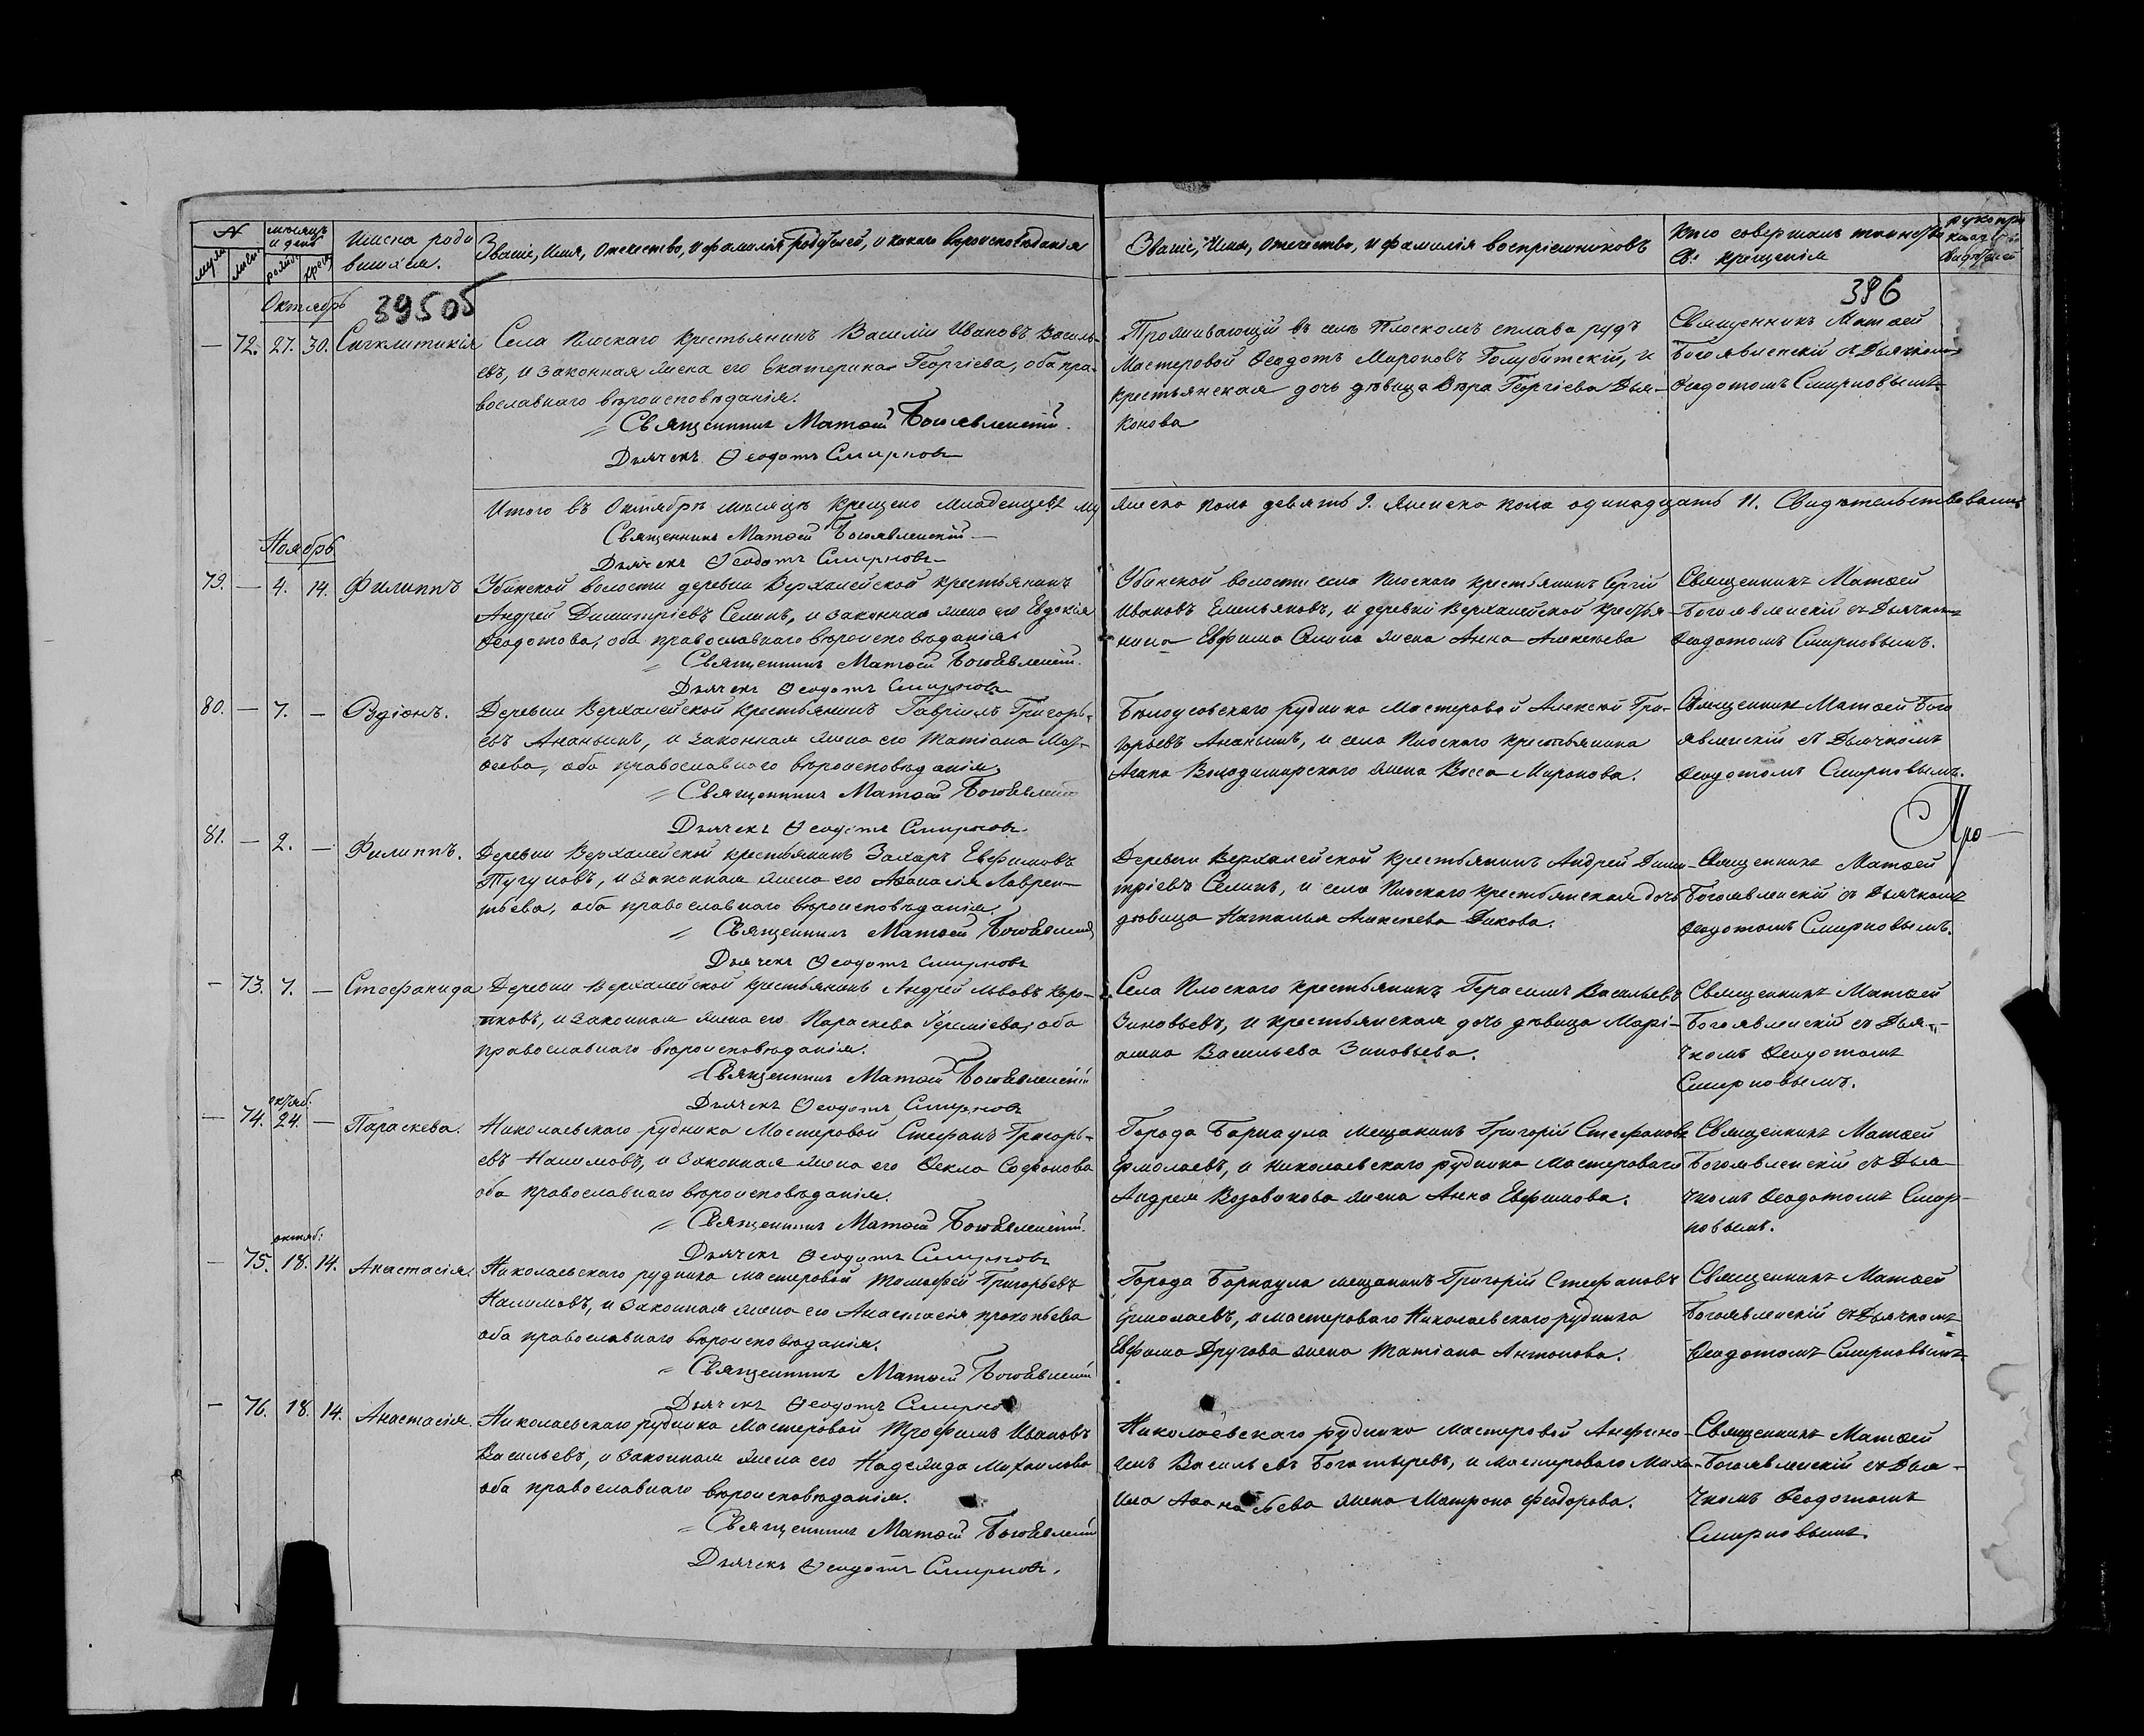 N
мѣсяцъ и день
Имена родившихся.
Званіе, Имя, отечество, и фамилія родителей, и какого вѣроисповѣданія
Званіе, Имя, отечество, и фамилія воспріемниковъ
Кто совершалъ таинство Св: крещенія
рукопри
Октябрь
395об
396
— 72. 27. 30. Сигклитикія
Села Плоскаго крестьянинъ Василій Ивановъ Василь-
евъ, и законная жена его Екатерина Георгіева, оба пра-
вославнаго вѣроисповѣданія.
Священникъ Матѳей Богоявленскій.
Дьячекъ Ѳеодотъ Смирновъ
Проживающій въ селѣ Плоскомъ сплава рудъ
Мастеровой Ѳеодотъ Мироновъ Голубитскій, и
крестьянская дочь дѣвица Вѣра Георгіева Дья-
конова
Священникъ Матѳей
Богоявленскій съ Дьячкомъ
Ѳеодотомъ Смирновымъ.
Итого въ Октябрѣ мѣсяцѣ крещено младенцевъ му
жеска пола девять 9. женска пола одинадцать 11. Свидѣтельствовали
Священникъ Матѳей Богоявленскій
Дьячекъ Ѳеодотъ Смирновъ
Ноябрь
79. — 4. 14. Филиппъ
Убинской волости деревни Верхалейской крестьянинъ
Андрей Димитріевъ Селинъ, и законная жена его Евдокія
Ѳеодотова, оба православнаго вѣроисповѣданія
Священникъ Матѳей Богоявленскій.
Дьячекъ Ѳеодотъ Смирновъ
Убинской волости села Плоскаго крестьянинъ Сергій
Ивановъ Емельяновъ, и деревни Верхалейской крестья
нина Евфима Селина жена Анна Алексѣева
Священникъ Матѳей
Богоявленскій съ Дьячкомъ
Ѳеодотомъ Смирновымъ.
80. — 7. — Родіонъ.
Деревни Верхалейской крестьянинъ Гавріилъ Григорь-
евъ Ананьинъ, и законная жена его Татіана Мат-
ѳеева, оба православнаго вѣроисповѣданія
Священникъ Матѳей Богоявленс
Дьячекъ Ѳеодотъ Смирновъ.
Бѣлоусовскаго рудника мастеровой Алексѣй Гри-
горьевъ Ананьинъ, и села Плоскаго крестьянина
Агапа Володимирскаго жена Васса Миронова.
Священникъ Матѳей Бого
явленскій съ Дьячкомъ
Ѳеодотомъ Смирновымъ.
Про—
81. — 2. — Филиппъ.
Деревни Верхалейской крестьянинъ Захаръ Евфимовъ
Тугуновъ, и законная жена его Аѳанасія Лаврен-
тьева, оба православнаго вѣроисповѣданія.
Священникъ Матѳей Богоявленскій
Дьячекъ Ѳеодотъ Смирновъ
Деревни Верхалейской крестьянинъ Андрей Дими-
тріевъ Селинъ, и села Плоскаго крестьянская дочь
дѣвица Наталья Алексѣева Дикова.
Священникъ Матѳей
Богоявленскій съ Дьячкомъ
Ѳеодотомъ Смирновымъ.
— 73. 7. — Стефанида
Деревни Верхалейской крестьянинъ Андрей Львовъ Коро-
тковъ, и законная жена его Параскева Ереміева, оба
православнаго вѣроисповѣданія.
Священникъ Матѳей Богоявленскій
Дьячекъ Ѳеодотъ Смирновъ
Села Плоскаго крестьянинъ Герасимъ Васильевъ
Зиновьевъ, и крестьянская дочь дѣвица Марі-
амна Васильева Зиновьева.
Священникъ Матѳей
Богоявленскій съ Дья-
чкомъ Ѳеодотомъ
Смирновымъ.
октяб.
— 74. 24. — Параскева.
Николаевскаго рудника Мастеровой Стефанъ Григорь-
евъ Налимовъ, и законная жена его Ѳекла Софонова
оба православнаго вѣроисповѣданія.
Священникъ Матѳей Богоявленскій.
Дьячекъ Ѳеодотъ Смирновъ
Города Барнаула мещанинъ Григорій Стефановъ
Ермолаевъ, и николаевскаго рудника мастероваго
Андрея Возовикова жена Анна Евфимова.
Священникъ Матѳей
Богоявленскій съ Дья
чкомъ Ѳеодотомъ Смир-
новымъ.
октяб:
— 75. 18. 14. Анастасія.
Николаевскаго рудника мастеровой Тимофей Григорьевъ
Налимовъ, и законная жена его Анастасія прокопьева
оба православнаго вѣроисповѣданія.
Священникъ Матѳей Богоявленскій
Дьячекъ Ѳеодотъ Смирно
Города Барнаула мещанинъ Григорій Стефановъ
Ермолаевъ, и мастероваго Николаевскаго рудника
Евфима Другова жена Татіана Антонова.
Священникъ Матѳей
Богоявленскій съ Дьячкомъ
Ѳеодотомъ Смирновымъ
— 76. 18. 14. Анастасія.
Николаевскаго рудника Мастеровой Трофимъ Ивановъ
Васильевъ, и законная жена его Надежда Михаилова
оба православнаго вѣроисповѣданія.
Священникъ Матѳей Богоявленскій
Дьячекъ Ѳеодотъ Смирновъ.
Николаевскаго рудника мастеровой Анфино-
генъ Васильевъ Богатыревъ, и мастероваго Миха-
ила Аѳанасьева жена Матрона Феодорова.
Священникъ Матѳей
Богоявленскій съ Дья-
чкомъ Ѳеодотомъ
Смирновымъ.